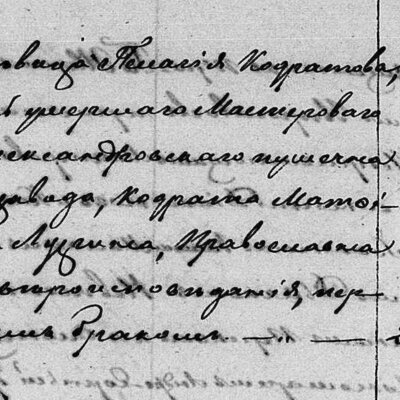 овица Пелагія Кодратова,
умершаго Мастероваго
лександровскаго пушечна
завода, Кодрата Матѳі-
Лузгина, Православна
вѣроисповѣданія, пер-
бракомъ